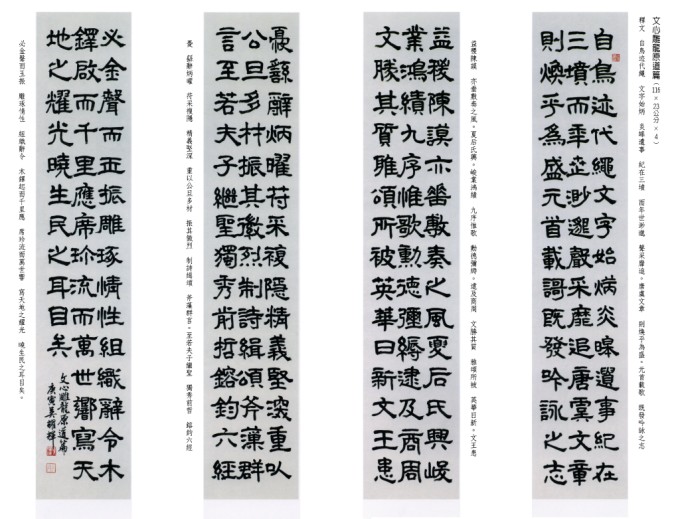 文心雕龍原道篇（116 × 23公分 × 4）
釋文　自鳥迹代繩　文字始炳　炎皞遺事　紀在三墳　而年世渺邈　聲采靡追。唐虞文章　則煥乎為盛。元首載歌　既發吟詠之志
自鳥迹代繩文字始炳炎皞遺事紀在
三墳而年世渺邈聲采靡追唐虞文章
則煥乎為盛元首載歌既發吟詠之志
益稷陳謨　亦垂敷奏之風。夏后氏興　峻業鴻績　九序惟歌　勳德彌縟。逮及商周　文勝其質　雅頌所被　英華日新。文王患
益稷陳謨亦垂敷奏之風夏后氏興峻
業鴻績九序惟歌勳德彌縟逮及商周
文勝其質雅頌所被英華日新文王患
憂　繇辭炳曜　符采複隱　精義堅深　重以公旦多材　振其徽烈　制詩緝頌　斧藻群言。至若夫子繼聖　獨秀前哲　鎔鈞六經
憂繇辭炳曜符采複隱精義堅深重以
公旦多材振其徽烈制詩緝頌斧藻群
言至若夫子繼聖獨秀前哲鎔鈞六經
必金聲而玉振雕琢情性組織辭令木
鐸啟而千里應席珍流而萬世響寫天
地之耀光曉生民之耳目矣
文心雕龍原道篇
庚寅吳耀輝
必金聲而玉振　雕琢情性　組織辭令　木鐸起而千里應　席珍流而萬世響　寫天地之耀光　曉生民之耳目矣。